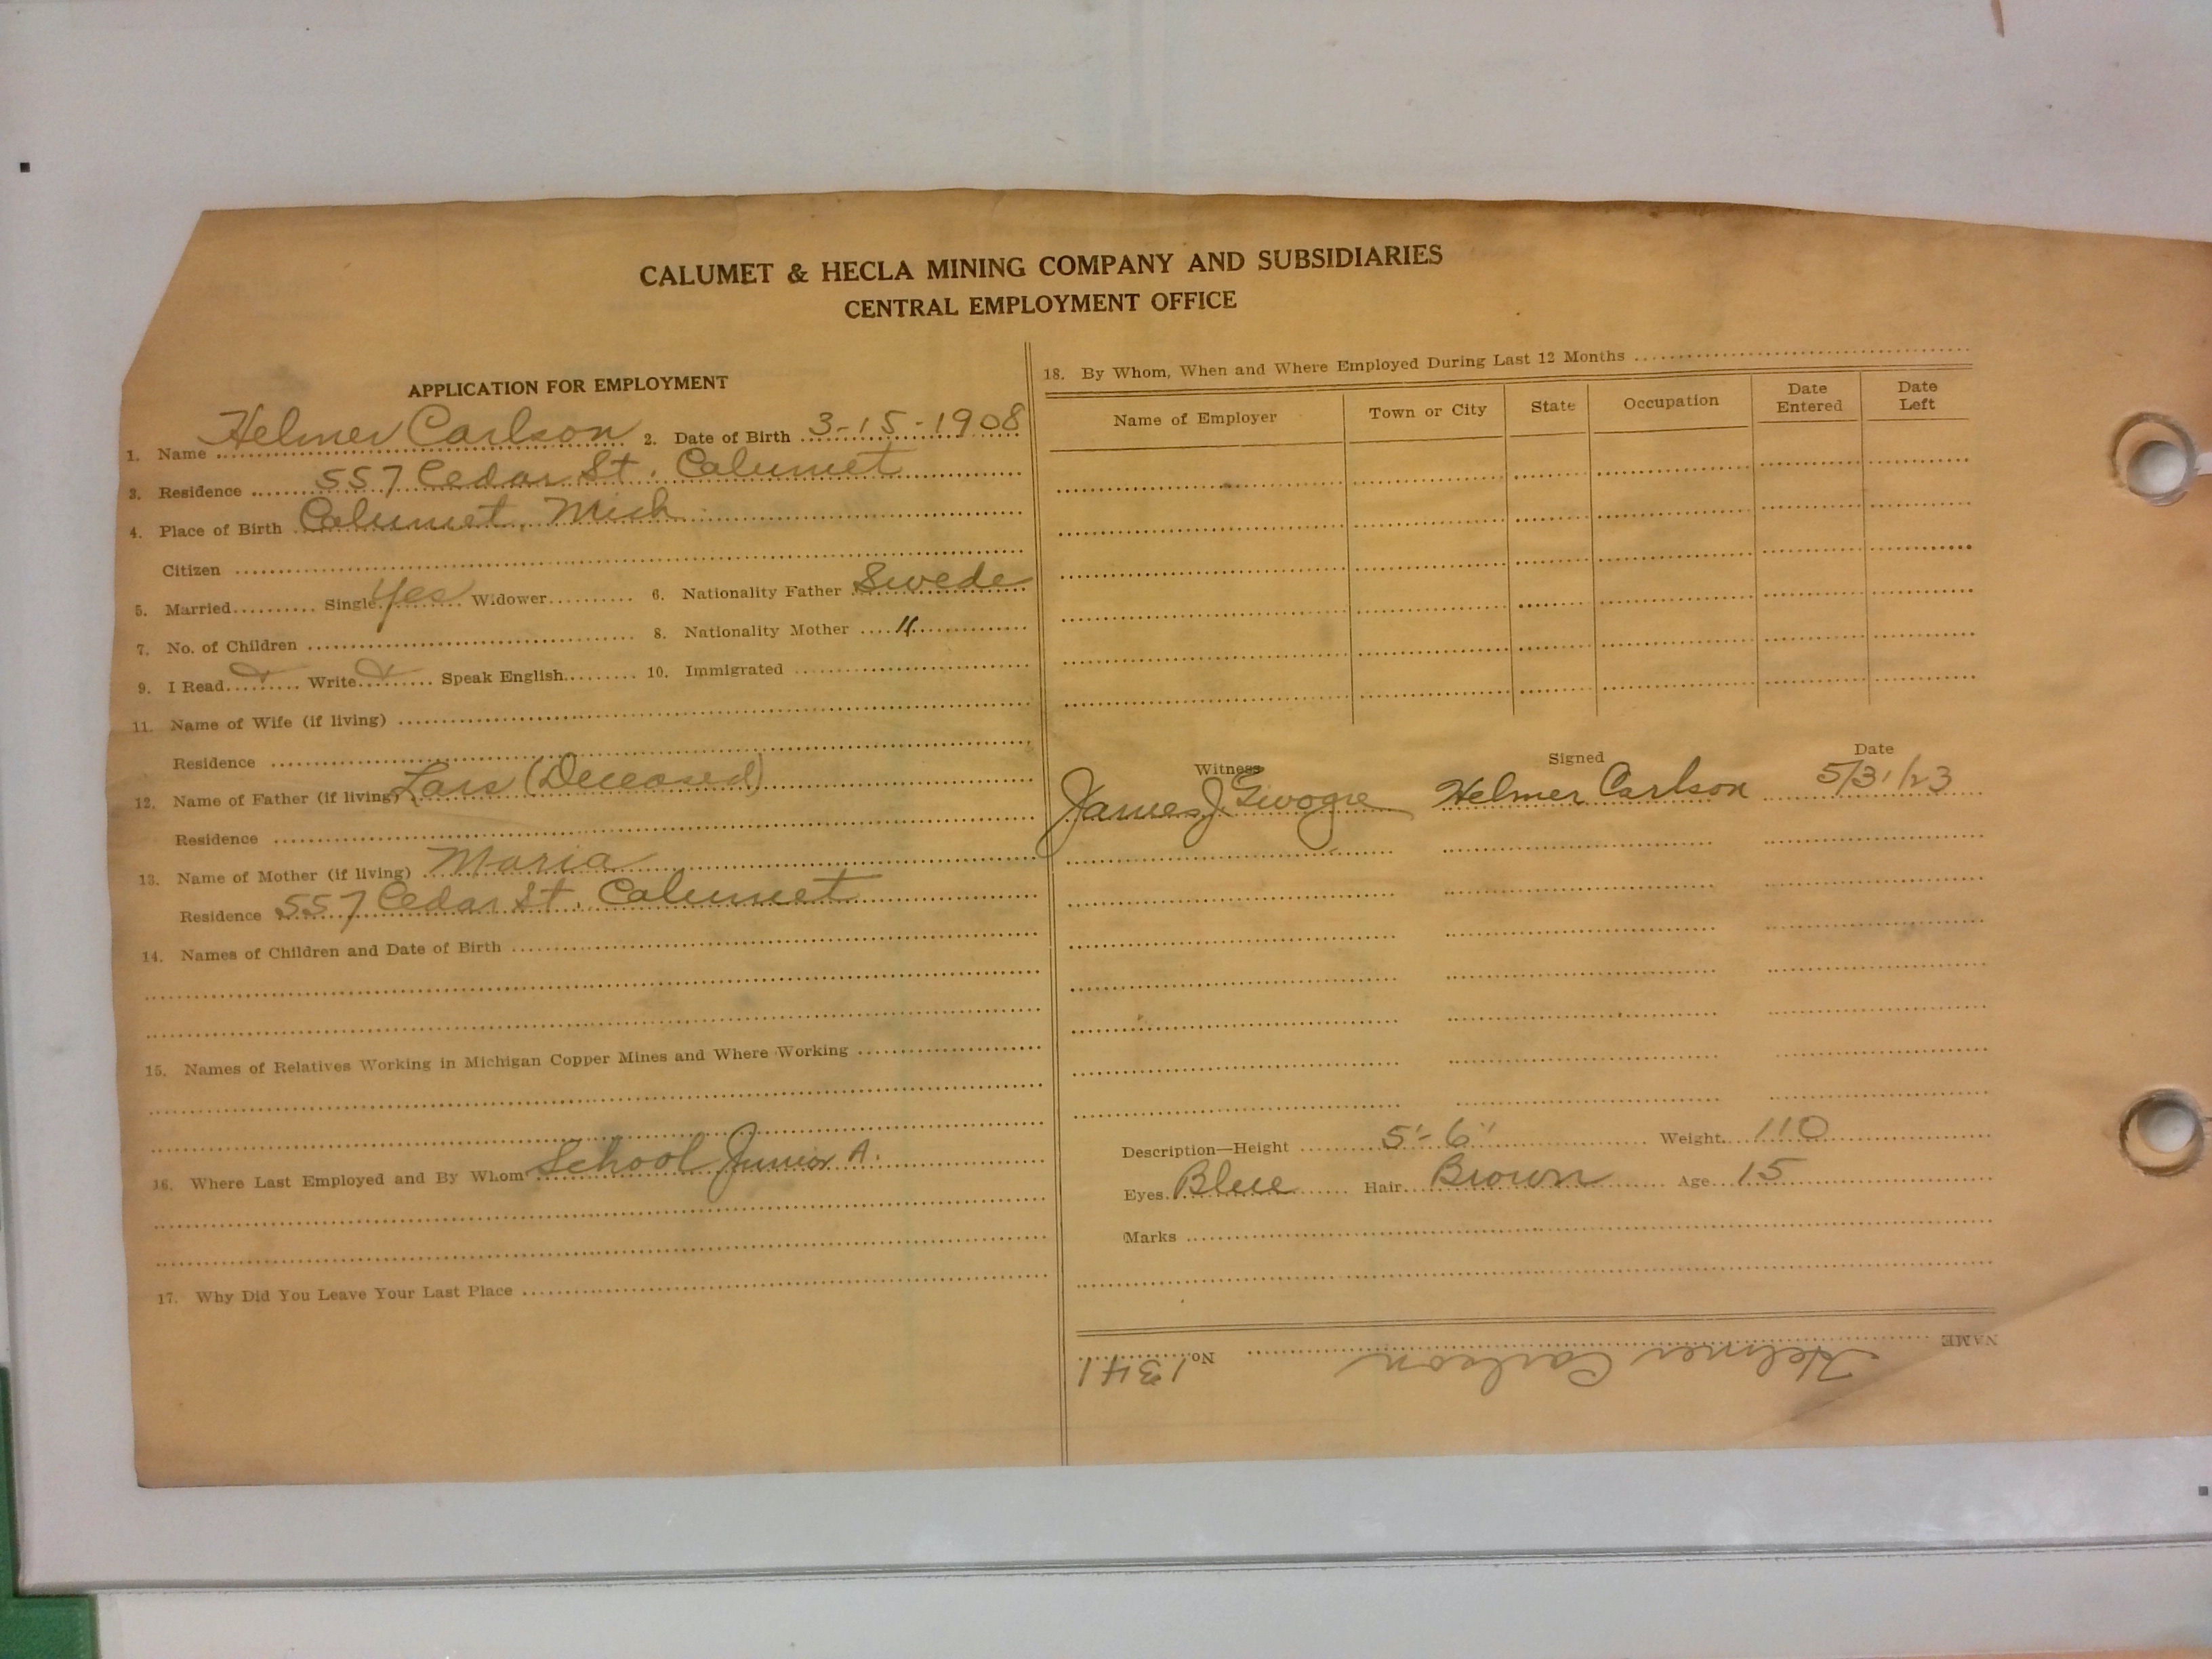 CALUMET & HECLA MINING COMPANY AND SUBSIDIARIES
CENTRAL EMPLOYMENT OFFICE
APPLICATION FOR EMPLOYMENT
1. Name Helmer Carlson 2. Date of Birth 3-15-1908
3. Residence 557 Cedar St. Calumet
4. Place of Birth Calumet, Mich
Citizen
5. Married Single Yes Widower 6. Nationality Father Swede
7. No. of Children 8. Nationality Mother "
9. I Read Write Speak English 10. Immigrated
11. Name of Wife (if living)
Residence
12. Name of Father (if living) Lars (Deceased)
Residence
13. Name of Mother (if living) Maria
Residence 557 Cedar St. Calumet
14. Names of Children and Date of Birth
15. Names of Relatives Working in Michigan Copper Mines and Where Working
16. Where Last Employed and By Whom School Junior A.
17. Why Did You Leave Your Last Place
18. By Whom, When and Where Employed During Last 12 Months
Name of Employer Town or City State Occupation Date Entered Date Left
Witness Signed Date
James J. Helmer Carlson 5/31/23
Description—Height 5'-6" Weight 110
Eyes Blue Hair Brown Age 15
Marks
NAME Helmer Carlson No. 1341